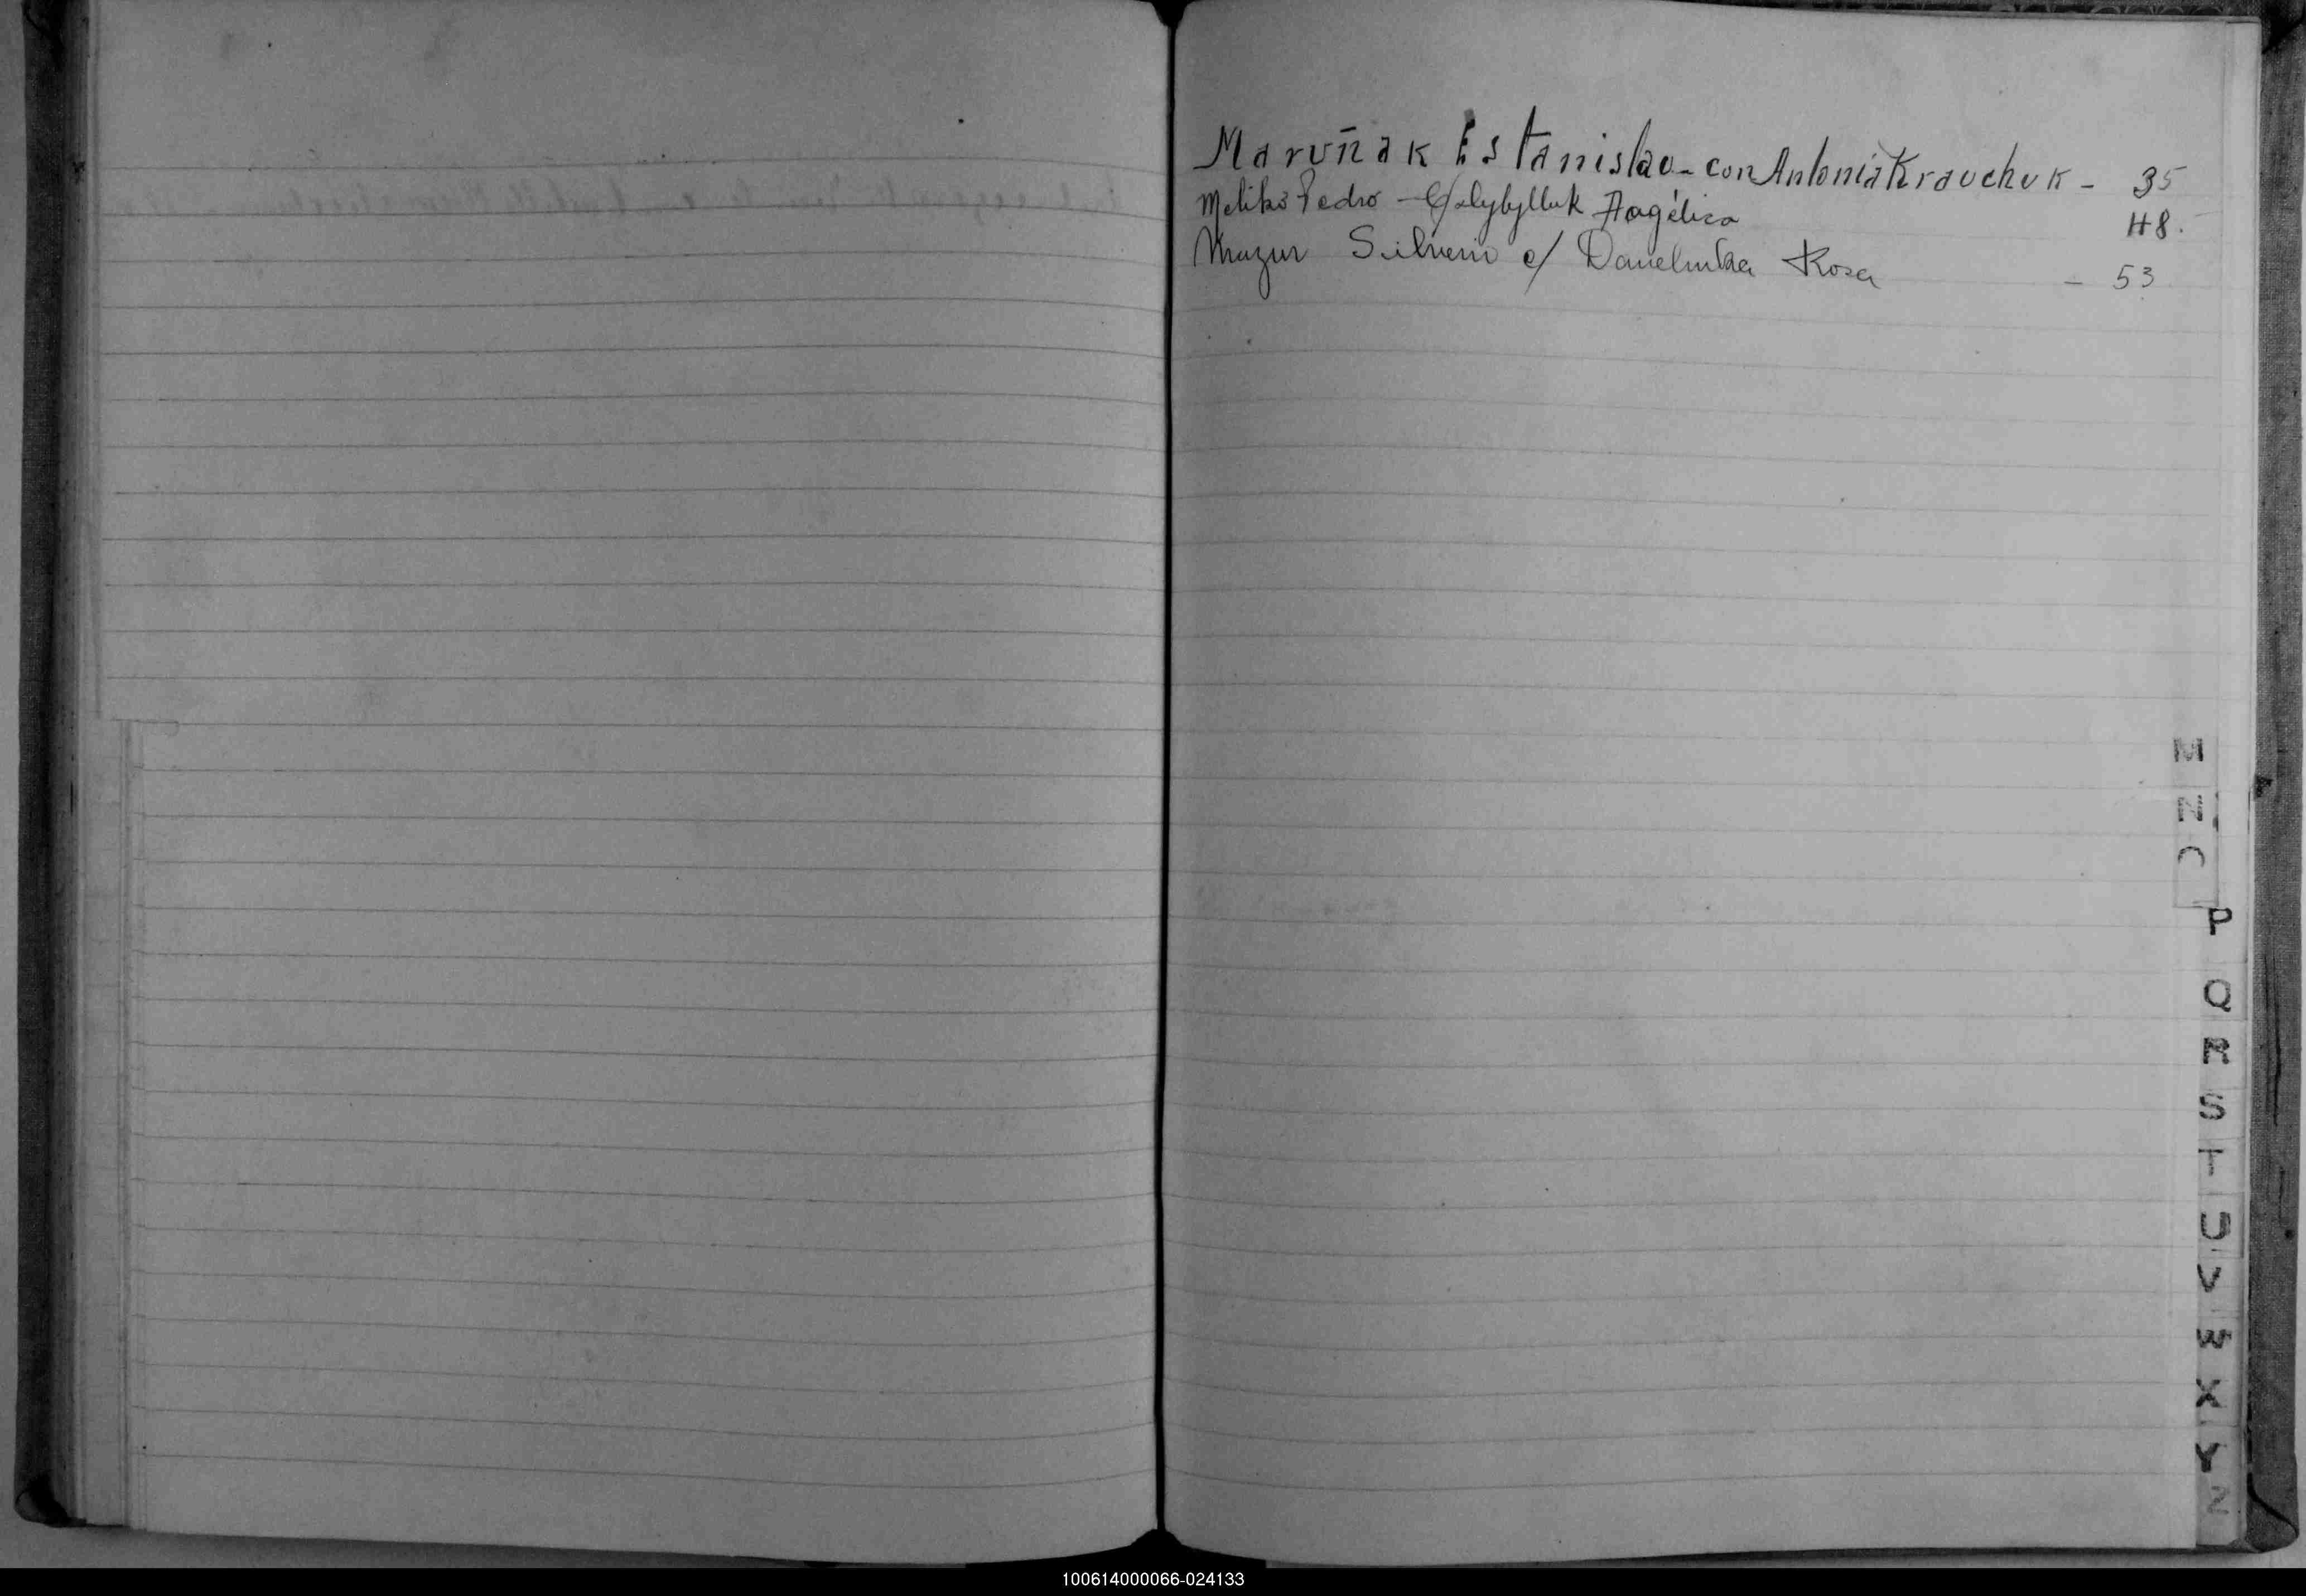 Maruñak Estanislao - con Antonia Kravchuk - 35
Meliko Pedro - Angélica 48.
Mazur Silverio c/ Rosa - 53
M
N
O
P
Q
R
S
T
U
V
W
X
Y
Z
100614000066-024133